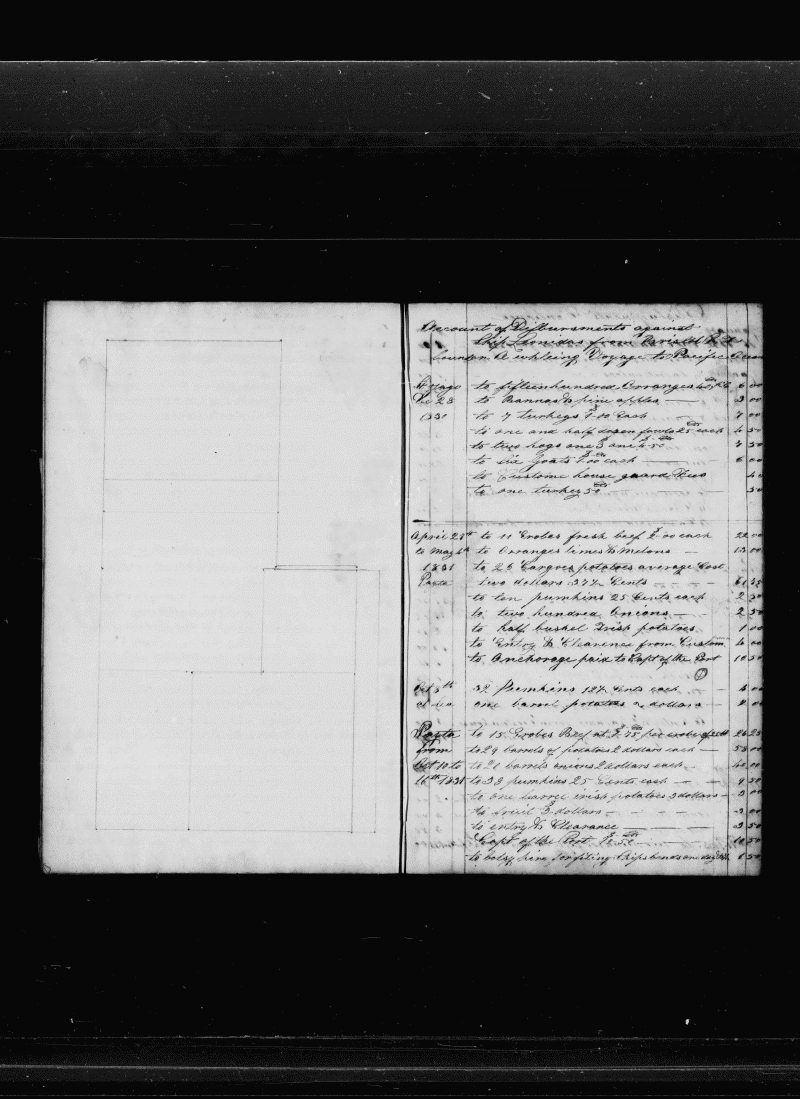 Account of Disbursments against
Ship Leonidas from Bristol R I
bound on A whleing Voyage to Pacific Ocean
to fifteen hundred Orranges 6 00
Dec 23 to Bannas & pine apples 3 00
1831 to 7 turkeys 1.00 Each 7 00
to one and half dozen fowls 25 cts each 4 50
to two hogs one 3 one 4.50 7 50
to Six Goats 1.00 each 6 00
to Custome house guard
to one turkey 50 cts 50
April 28th to 11 Erobes fresh beef 2.00 each 22 00
to May 5th to Orranges limes & Melons 13 00
1831 to 26 Cargoes potatoes average Cost
Paita two dollars 37½ Cents 61
to ten pumkins 25 Cents each 2 50
to two hundred Onions 2 50
to half bushel Irish potatoes 1 00
to Entry & Clearence from Custom 4 00
to Anchorage paid to Capt of the Port 10 50
Oct 5th 32 Pumkins 12½ Cents each 4 00
at sea one barrel potatoes 2 dollars 2 00
Paita to 15 Erobes Beef at 1.75 per erobe 26 25
from to 29 barrels of potatoes 2 dollars each 58 00
Oct 10 to to 20 barrels onions 2 dollars each 40 00
16th 1831 to 38 pumkins 25 Cents each 9 50
to one barrel irish potatoes 3 dollars 3 00
to fruit 3 dollars 3 00
to entry & Clearance 3 50
Capt of the Port 10 50
to 6 50